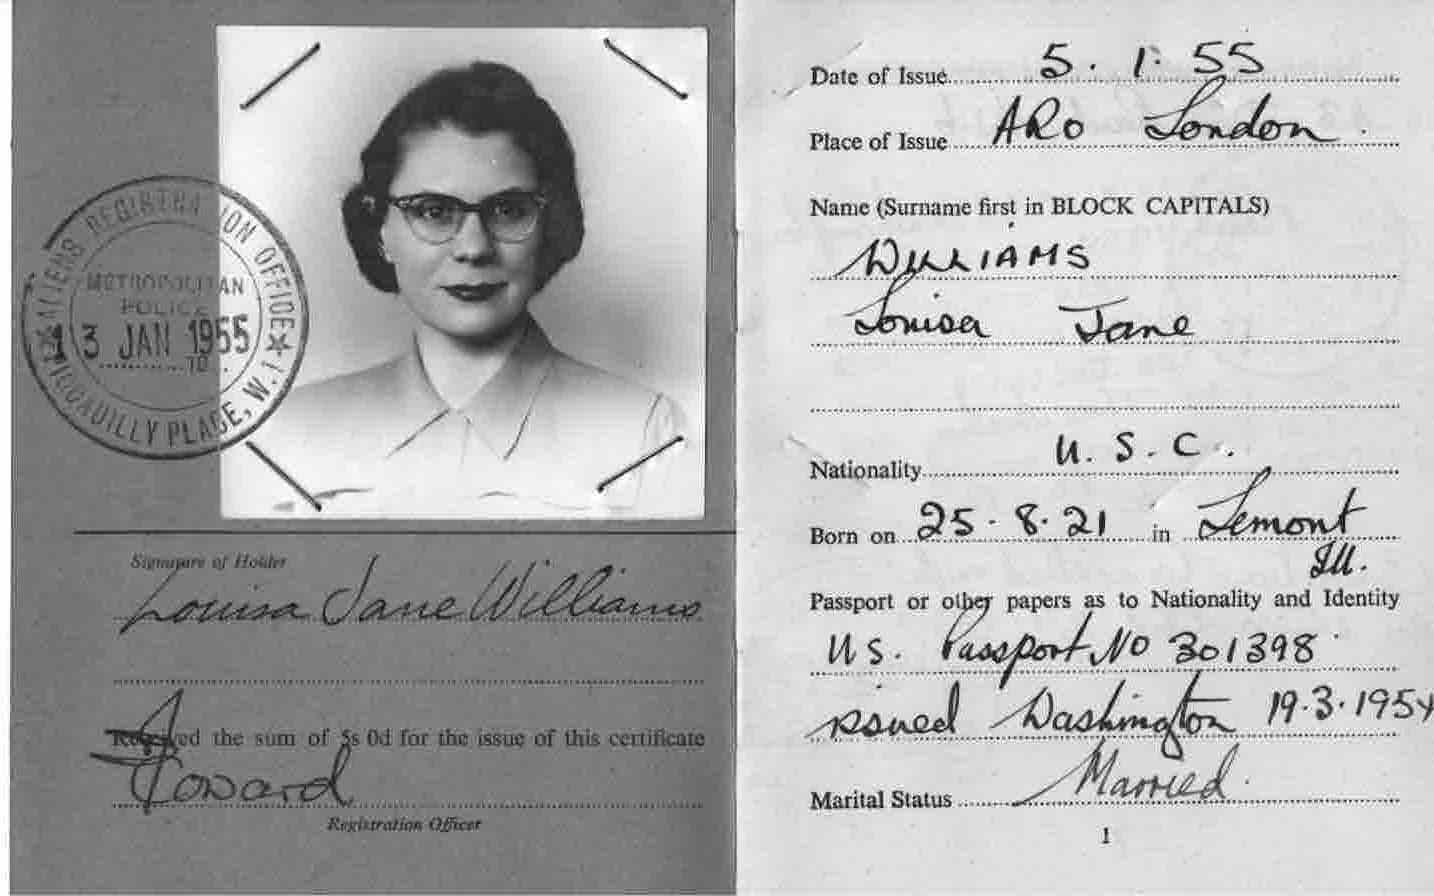 ALIENS REGISTRATION OFFICE
METROPOLITAN
POLICE
13 JAN 1955
10
PICCADILLY PLACE, W.1
Signature of Holder
Louisa Jane Williams
Received the sum of 5s 0d for the issue of this certificate
Registration Officer
Date of Issue 5. 1. 55
Place of Issue ARO London.
Name (Surname first in BLOCK CAPITALS)
WILLIAMS
Louisa Jane
Nationality U. S. C.
Born on 25. 8. 21 in Lemont
Ill.
Passport or other papers as to Nationality and Identity
U.S. Passport No 301398
issued Washington 19.3.1954
Marital Status Married.
1